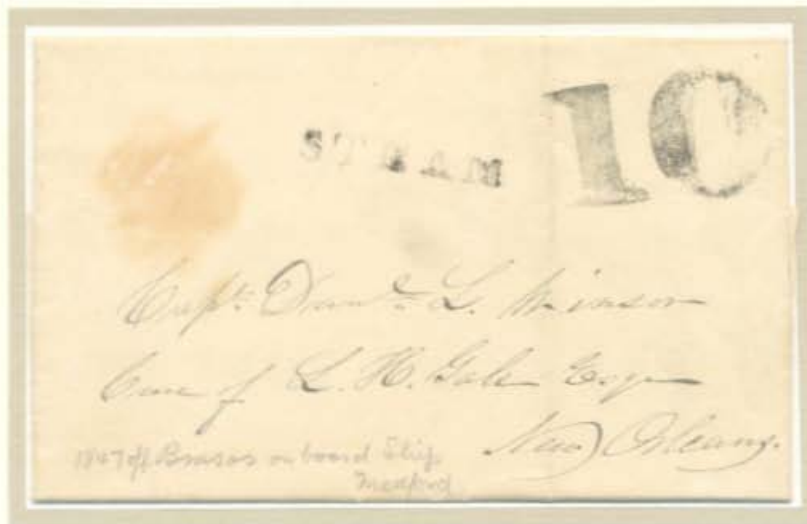 STEAM 10
Capt. Danl. L. Winsor
Care of L. H. Gale Esqr
New Orleans.
1847 off Brasos on board Ship
Medford